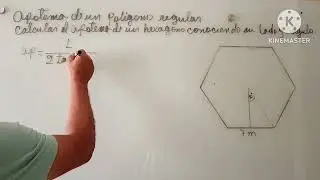 Apotema de un Polígono regular
Calcular el apotema de un hexagono conociendo su lado y ángulo
ap = L
2 ta
7 m
KINEMASTER